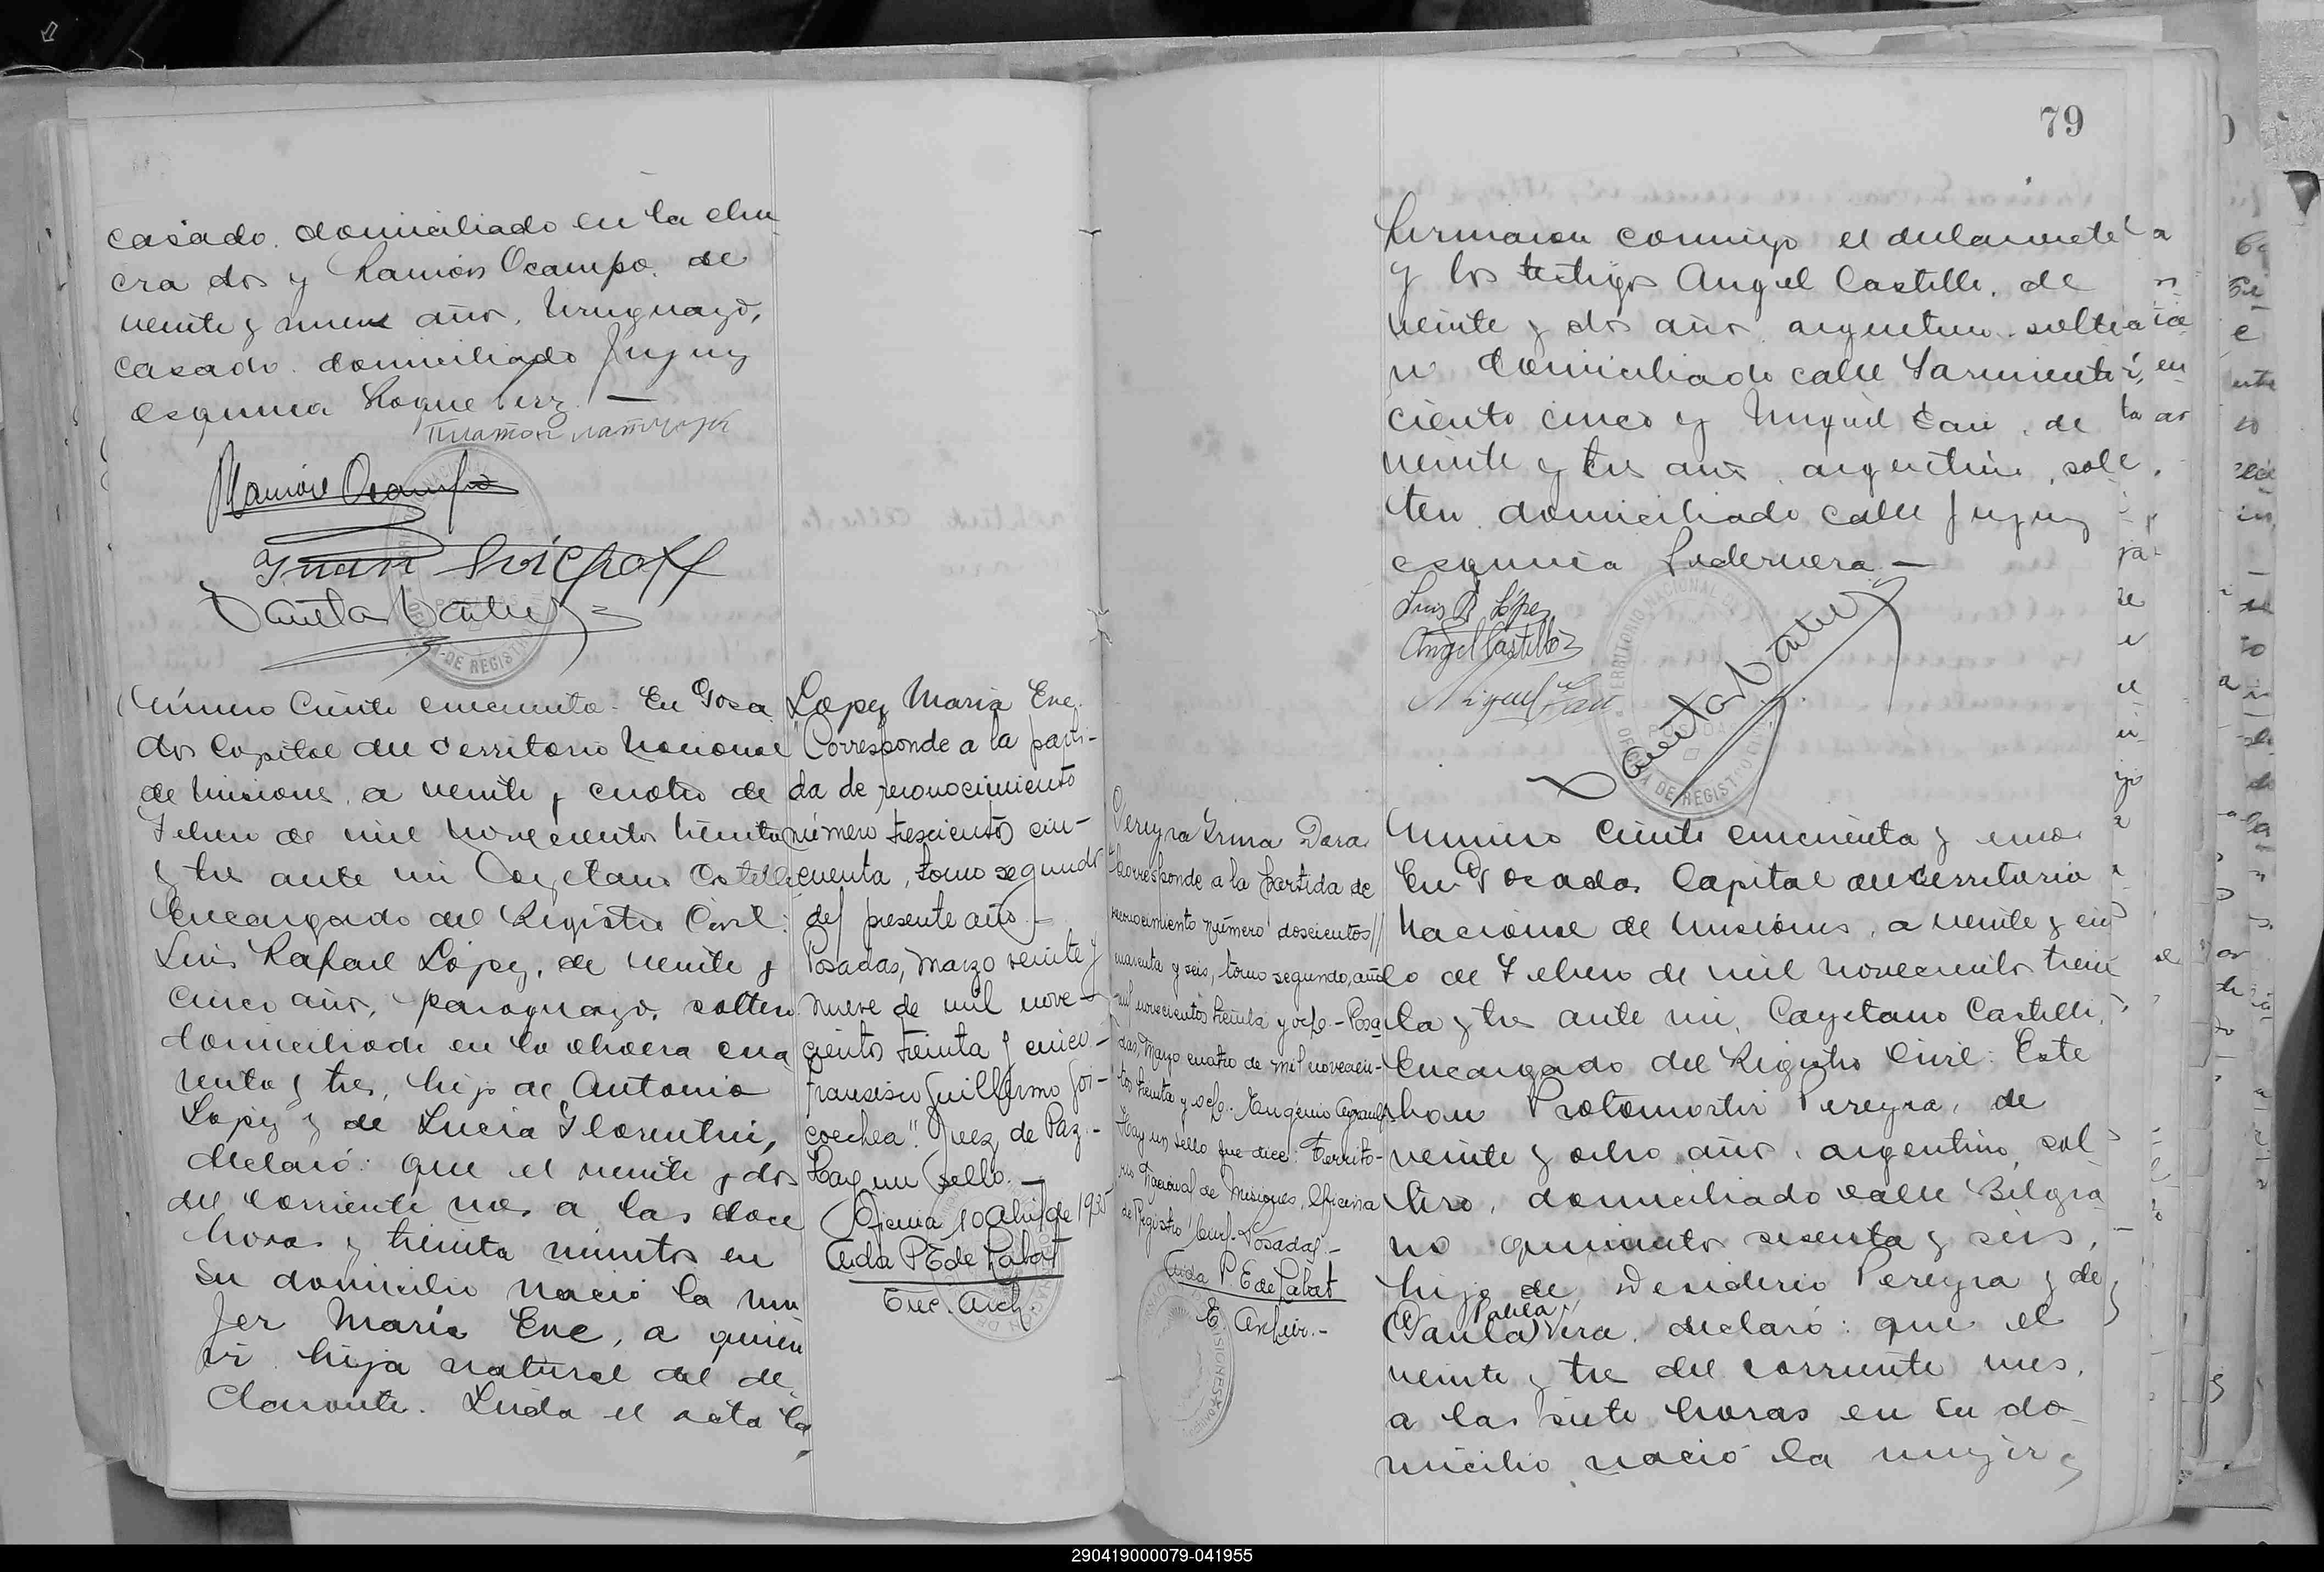 casado. domiciliado en la cha
cra dos y Ramón Ocampo. de
veinte y nueve años, Uruguayo,
casado. domiciliado Jujuy
esquina Roque Perez. —
Ramón Ocampo
Juan
Número Ciento cincuenta. En Posa
das Capital del Territorio Nacional
de Misiones, a veinte y cuatro de
Febrero de mil novecientos treinta
y tres ante mi Cayetano Castelli
Encargado del Registro Civil:
Luis Rafael López, de veinte y
cinco años, paraguayo, soltero
domiciliado en la chacra cua
renta y tres, hijo de Antonio
Lopez y de Lucia Florentin,
declaró: que el veinte y dos
del corriente mes a las doce
horas y treinta minutos en
su domicilio nació la mu
jer María Eve, a quien
hija natural del de
clarante. Leida el acta la
Lopez María Eve.
"Corresponde a la parti-
da de reconocimiento
número trescientos cin-
cuenta, tomo segundo
del presente año.-
Posadas, Marzo veinte y
nueve de mil nove-
cientos treinta y cinco-
Francisco Guillermo Goi-
coechea". Juez de Paz.-
Hay un sello.-
Oficina, 10 Abril de 1935
Aida P. E de Labat
Enc. Arch.
79
firmaron conmigo el declarante
y los testigos Angel Castelli, de
veinte y dos años argentino. solte
ro domiciliado calle Sarmiento
ciento cinco y Miguel Cau, de
veinte y tres años, argentino, sol
tero domiciliado calle Jujuy
esquina Pedernera. —
Luis R López
Angel Castelli
Miguel Cau
TERRITORIO NACIONAL DE
POSADAS
OFICINA DE REGISTRO CIVIL
Pereyra Irma Dora
"Corresponde a la partida de
reconocimiento número doscientos//
cuarenta y seis, tomo segundo, año
mil novecientos treinta y ocho - Posa-
das, Mayo cuatro de mil novecien-
tos treinta y ocho. Eugenio
Hay un sello que dice: Territo-
rio Nacional de Misiones, Oficina
de Registro Civil - Posadas".-
Aida P. E de Labat
E. Archiv.-
Número Ciento cincuenta y uno
En Posadas Capital del Territorio
Nacional de Misiones, a veinte y cin
co de Febrero de mil novecientos trein
ta y tres ante mi, Cayetano Castelli,
Encargado del Registro Civil: Este
ban Protomartir Pereyra, de
veinte y ocho años, argentino, sol
tero, domiciliado calle Belgra
no quinientos sesenta y seis,
hijo de Desiderio Pereyra y de
Pabla
(Paula) Vera. declaró: que el
veinte y tres del corriente mes,
a las siete horas en su do
micilio nació la mujer
290419000079-041955